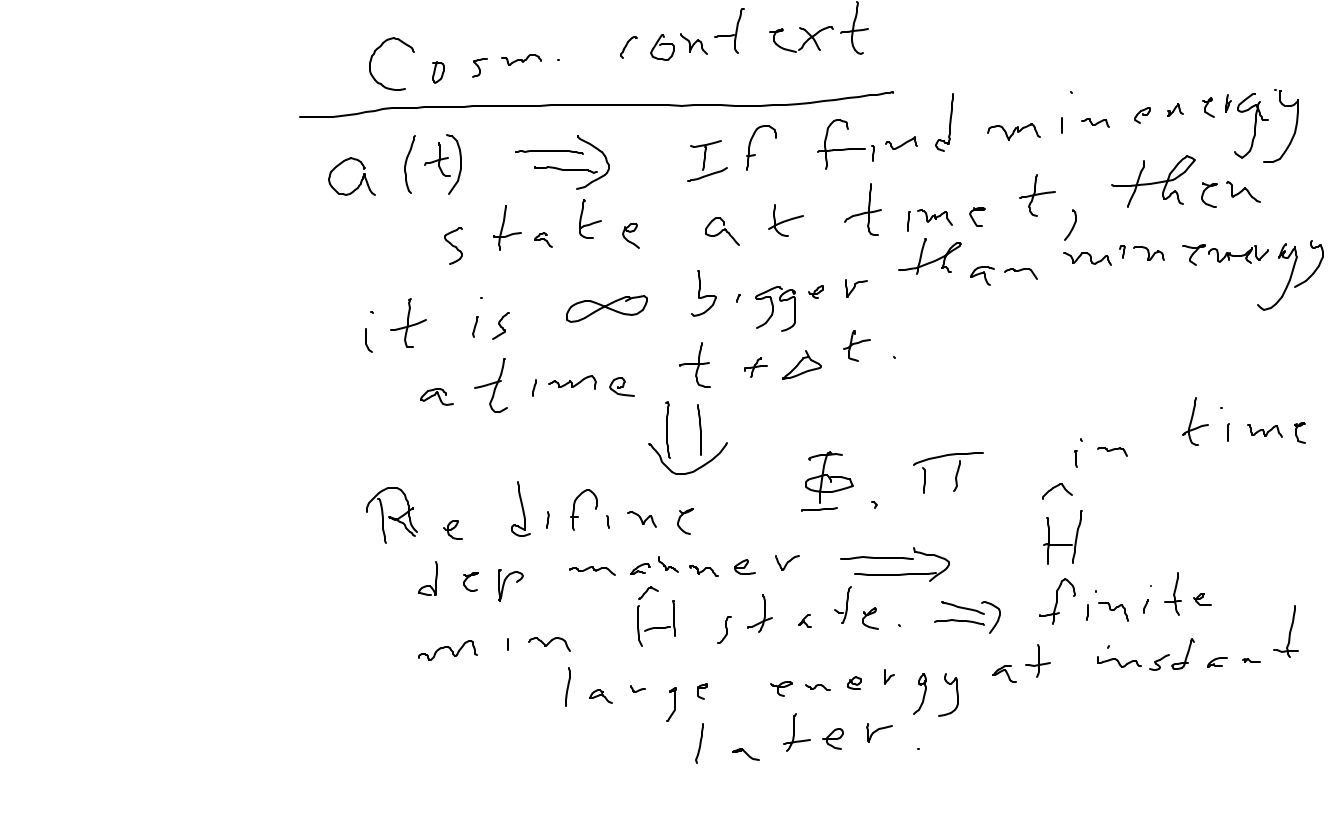 Cosm. context
a(t) ⇒ If find min energy
state at time t, then
it is ∞ bigger than min energy
a time t + Δt.
⇓
Redifine Φ, Π in time
dep manner ⇒ Ĥ
min Ĥ state. ⇒ finite
large energy at instant
later.